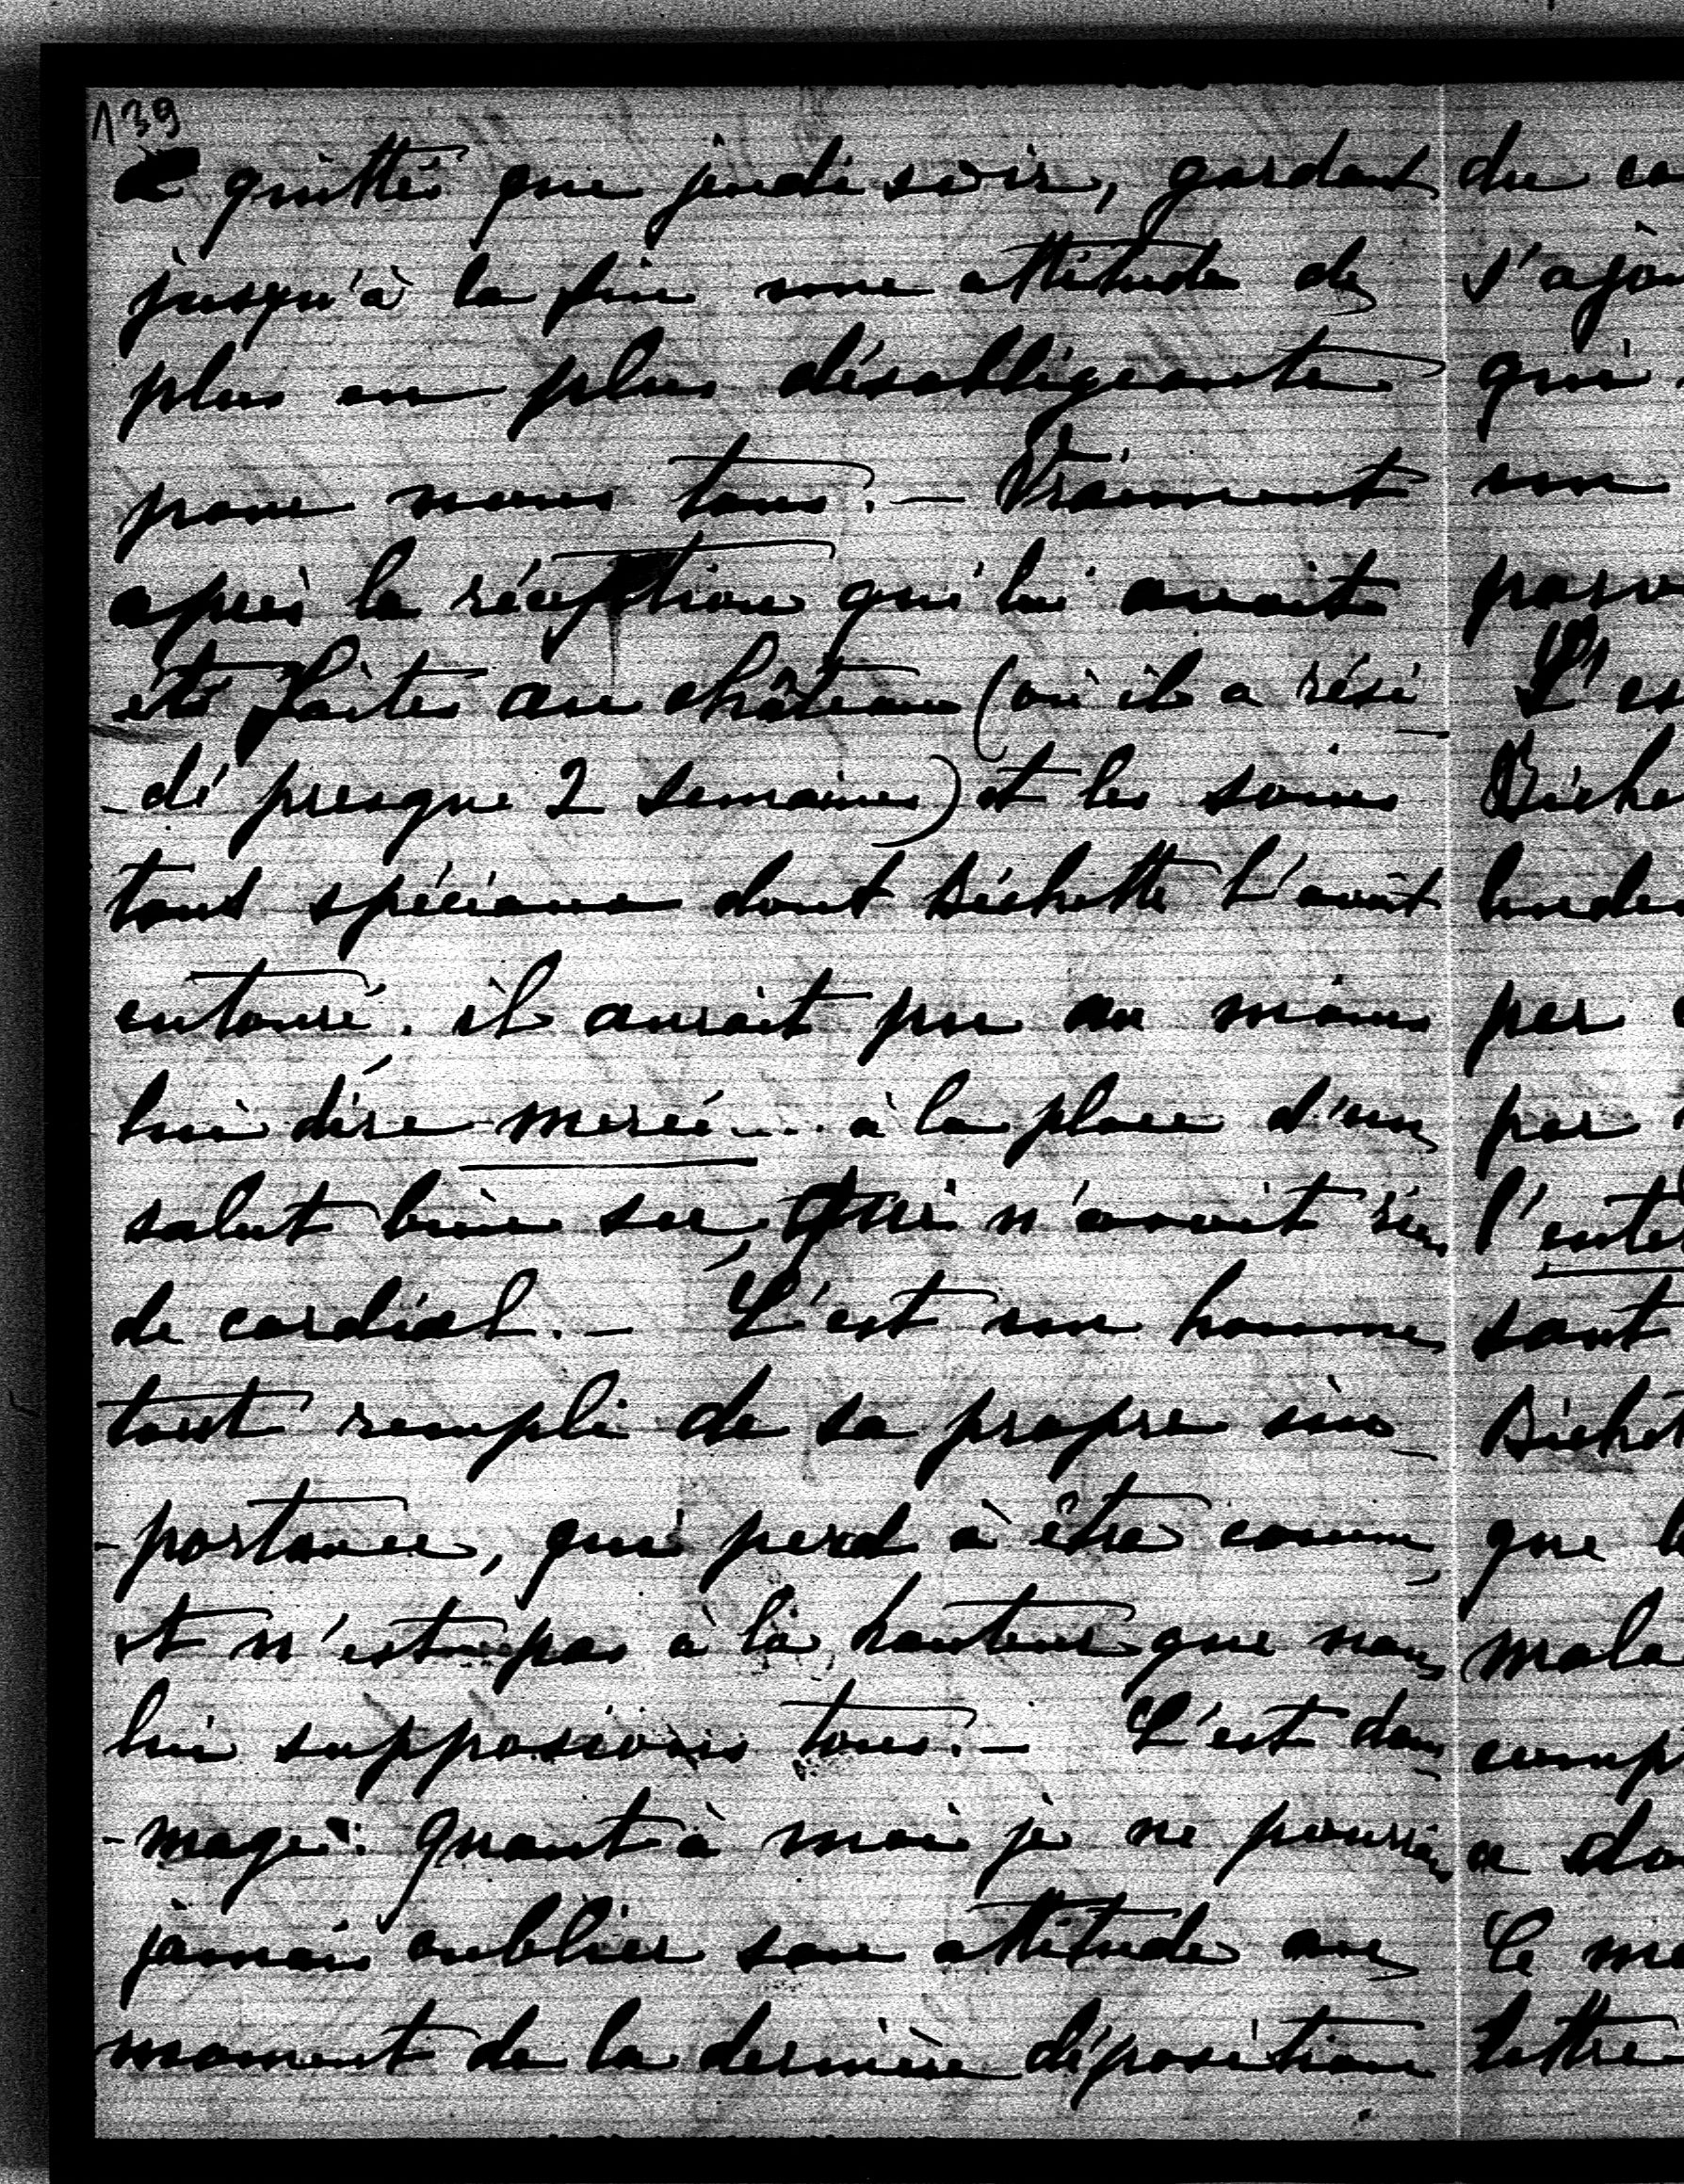 139
quitté que jeudi soir, gardant
jusqu'à la fin une attitude de
plus en plus désobligeante
pour nous tous. — Vraiment
après la réception qui lui avait
été faite au château (où il a rési-
-dé presque 2 semaines) et les soins
tout spéciaux dont Béchette l'avait
entouré. il aurait pu au moins
lui dire merci.... à la place d'un
salut bien sec, qui n'avait rien
de cordial. — C'est un homme
tout rempli de sa propre im-
-portance, qui perd à être connu,
et n'est pas à la hauteur que nous
lui supposions tous. — C'est dom-
-mage: quant à moi je ne pourrai
jamais oublier son attitude au
moment de la dernière déposition
du
s'ajou
qui
un
L'es
par
par
l'enter
sont
que
mala
a
Le
lettre